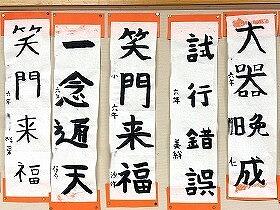 大器晩成
六年 仁
試行錯誤
六年
笑門来福
六年
一念通天
六年
笑門来福
六年